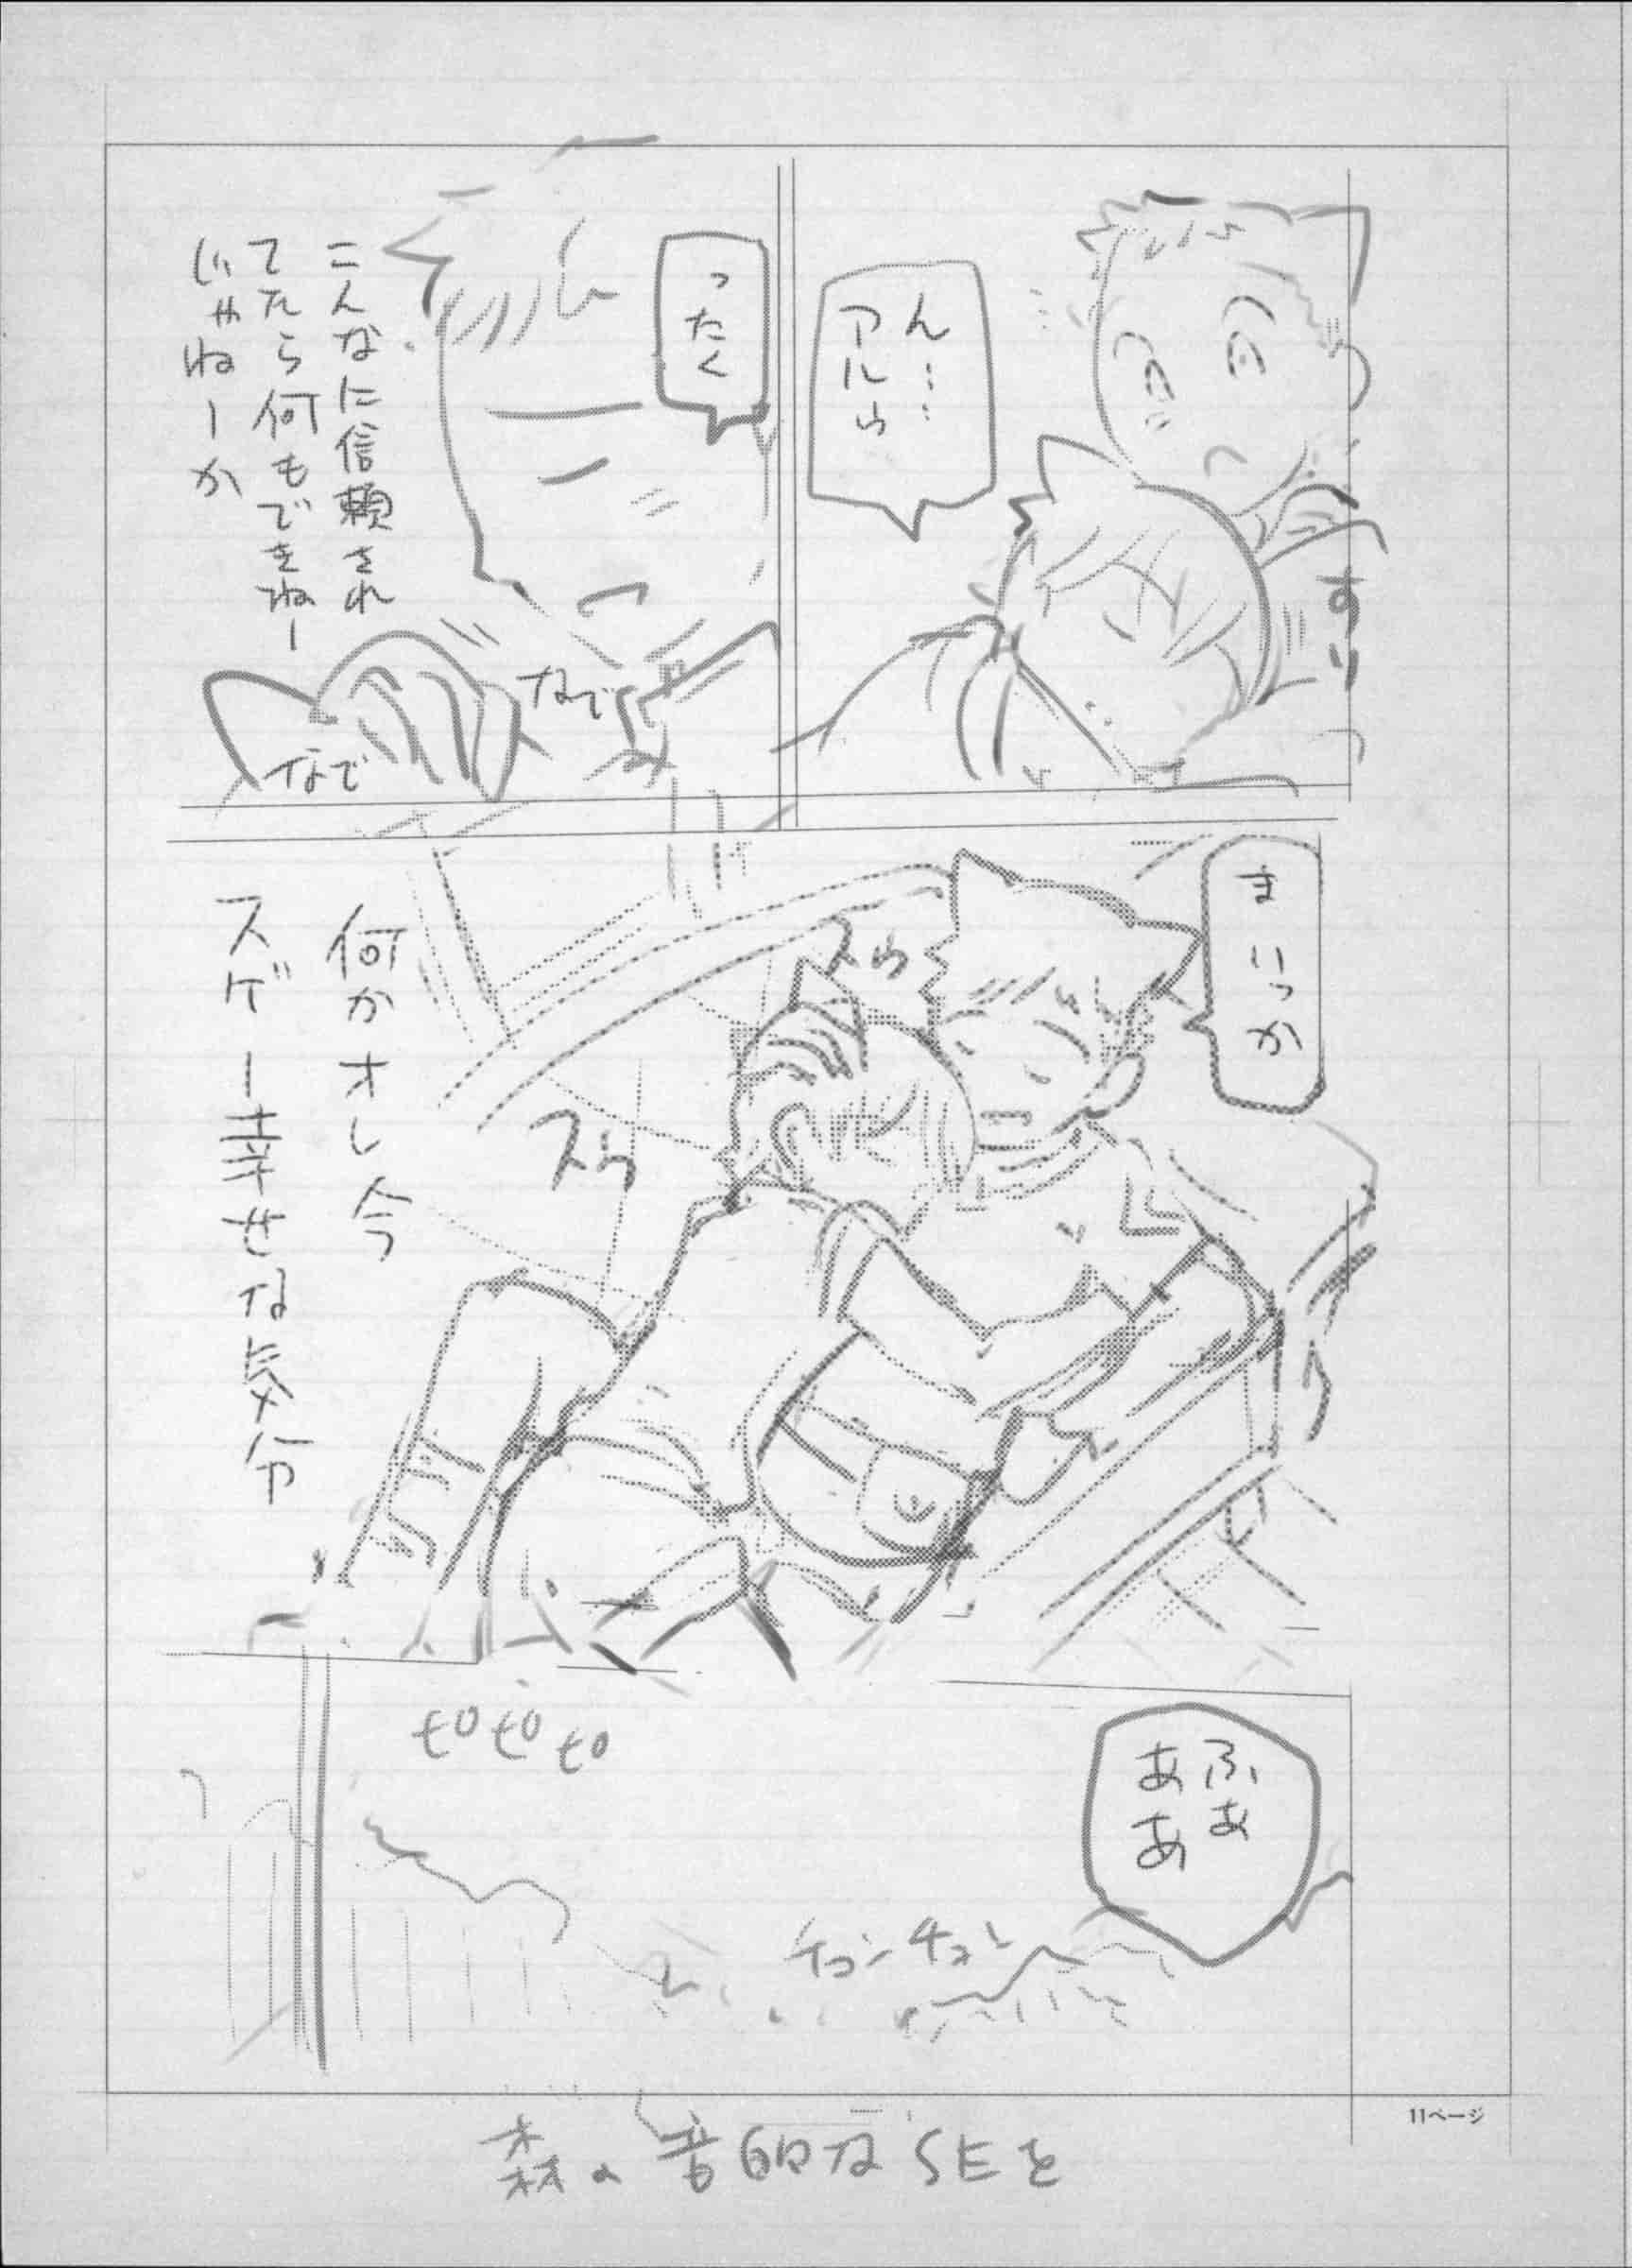 ん……
アルら
すり
ったく
こんなに信頼され
てたら何もできねー
じゃねーか
なで
なで
まいっか
スゥ
スゥ
何かオレ今
スゲー幸せな気分
ふぁ
ああ
チュンチュン
11ページ